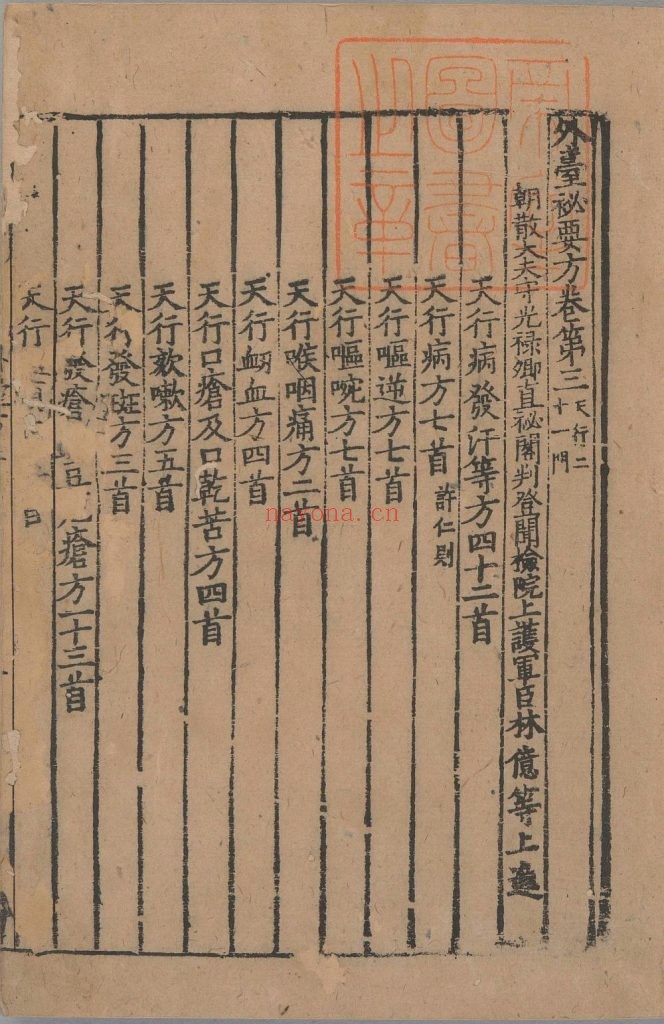 外臺祕要方卷第三 天行二十一門
朝散大夫守光禄卿直祕閣判登聞檢院上護軍臣林億等上進
天行病發汗等方四十二首
天行病方七首 許仁則
天行嘔逆方七首
天行嘔啘方七首
天行喉咽痛方二首
天行衂血方四首
天行口瘡及口乾苦方四首
天行欬嗽方五首
天行發斑方三首
天行發瘡豆瘡方一十三首
天行
nayona.cn